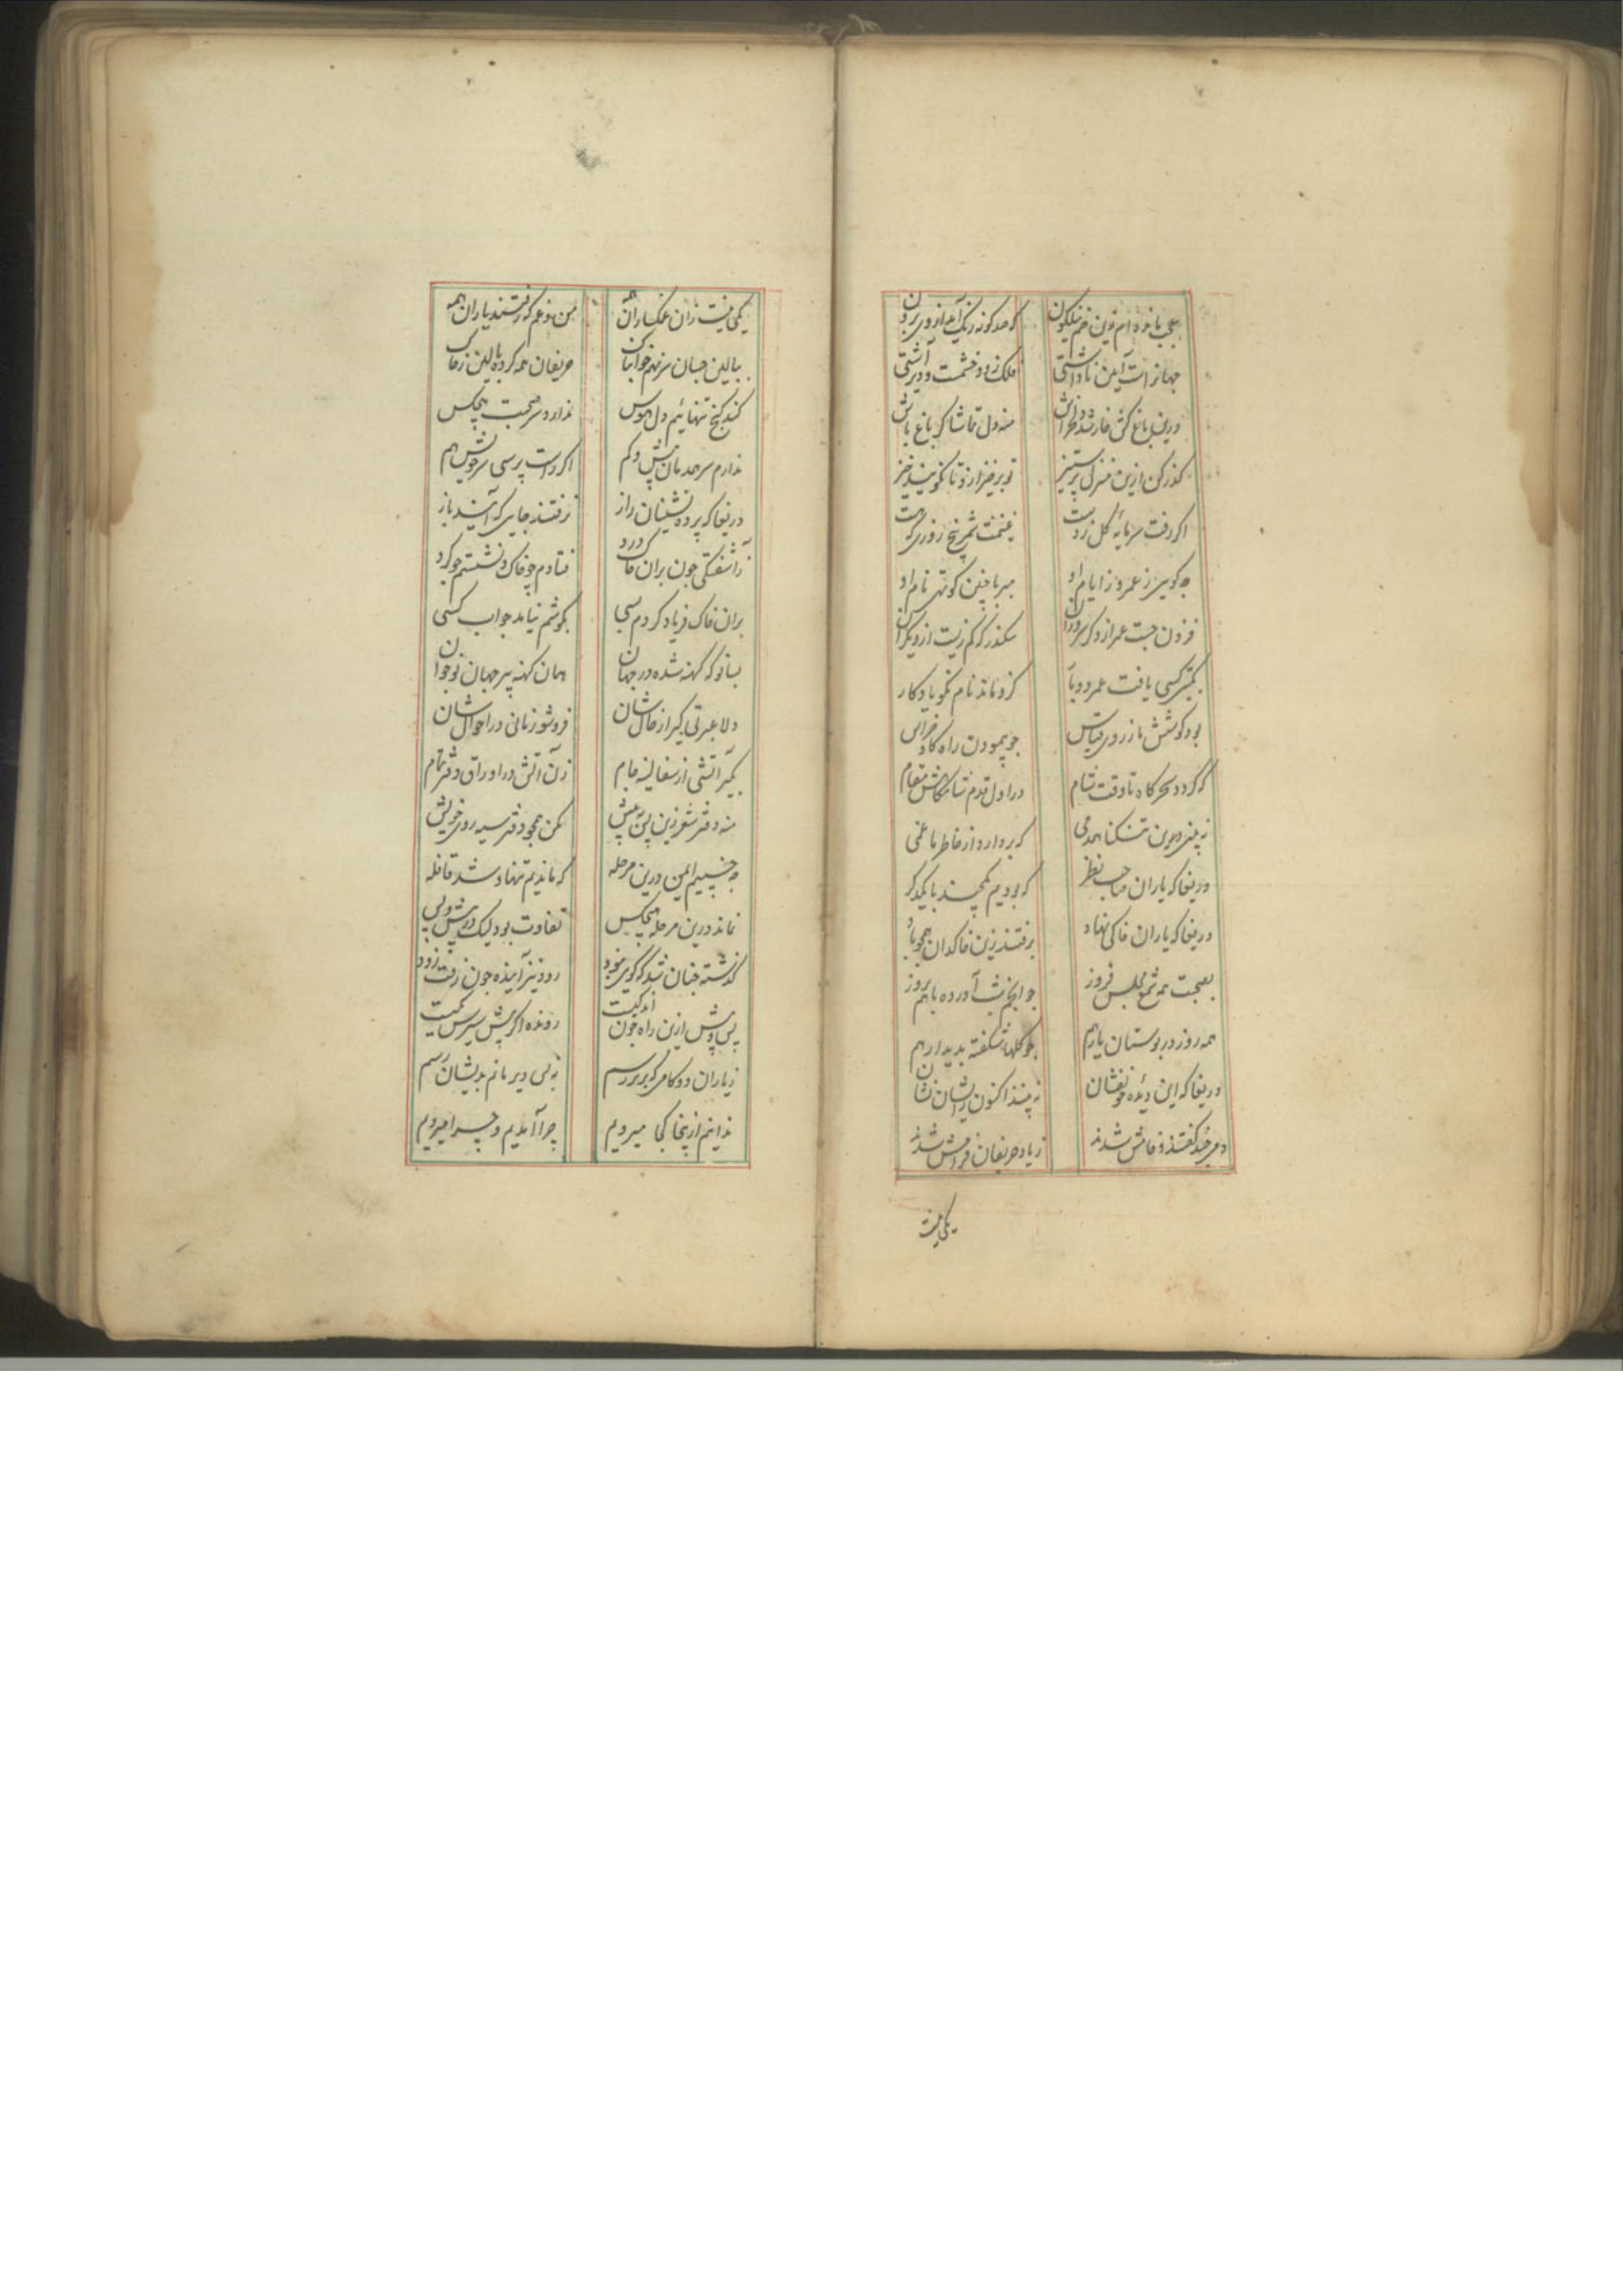 عجب مانده‌ام زین خم نیلکون که صد کونه رنک آید ازوی برون
جهانراست آیین ناداشتی فلک زود خشمست و دیر آشتی
درین باغ کش خار شد منه دل تماشاکر باغ باش
کذر کن ازین منزل پر ستیز تو برخیز ازو تا نکویند خیز
اکر رفت سرمایهٔ کل ز دست غنیمت شمر پنج روزی که هست
چه کویی ز عمر و ز ایام او ببر با چنین کوتهی نام او
فزون جست عمر از دکر سروران سکندر که کم زیست از دیکران
بکیتی کسی یافت عمر دوبار کزو ماند نام نکو یادکار
بود کوشش ما ز روی قیاس چو پیمودن راه کاو خراس
که کردد سحرکاه تا وقت شام در اول قدم شامکاهش مقام
نه بینی درین تنکنا همدمی که بردارد از خاطر ما غمی
دریغا که یاران صاحب نظر که بودیم یکچند با یکدکر
دریغا که یاران خاکی نهاد برفتند زین خاکدان همچو باد
بصحبت همه شمع مجلس فروز چو انجم شب آورده باهم بروز
همه روز در بوستان یار هم چو کلها شکفته بدیدار هم
دریغا که این دیده خونفشان نه بیند اکنون زایشان نشان
دمی چند کفتند و خامش شدند زیاد حریفان فرامش شدند
یکی نیست
یکی نیست زان غمکساران همه من و غم که رفتند یاران همه
ببالین چسان سر نهم خوابناک حریفان همه کرده بالین ز خاک
کند کنج تنهائیم دل هوس ندارد سر صحبت هیچکس
ندارم سر همدمان بیش و کم اکر راست پرسی سر خویش هم
دریغا که پرده نشینان راز نرفتند جایی که آیند باز
ز آشفتکی چون بران خاک درد فتادم چو خاک و نشستم چو کرد
بران خاک فریاد کردم بسی بکوشم نیامد جواب کسی
بسا نو که کهنه شده در جهان همان کهنه پیر جهان نوجوان
دلا عبرتی کیر از حال شان فروشو زمانی در احوال شان
بکیر آتشی از سفالینه جام زن آتش در اوراق دفتر تمام
منه دفتر شعر زین پس به پیش مکن همچو دفتر سیه روی خویش
چه خسپیم ایمن درین مرحله که ماندیم تنها و شد قافله
نماند درین مرحله هیچکس تفاوت بود لیک در پیش و پس
کذشته چنان شد که کویی نبود رود نیز آینده چون رفت زود
پس و پیش ازین راه چون اندکیست رونده اکر پیش سر پس یکیست
زیاران دو کامی که برتر رسم نه بس دیر مانم بدیشان رسم
ندانم ازینجا کجا میرویم چرا آمدیم و چرا میرویم